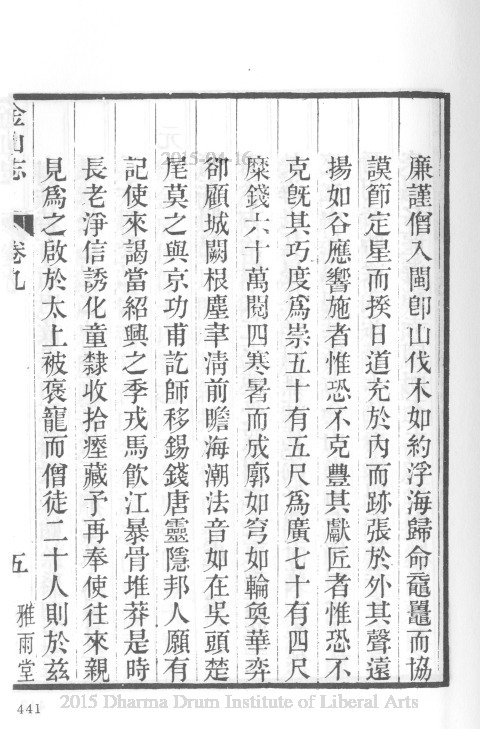 廉謹僧入閩卽山伐木如約浮海歸命黿鼉而協
謨節定星而揆日道充於內而跡張於外其聲遠
揚如谷應響施者惟恐不克豐其獻匠者惟恐不
克旣其巧度爲崇五十有五尺爲廣七十有四尺
糜錢六十萬閱四寒暑而成廓如穹如輪奐華弈
卻顧城闕根塵聿淸前瞻海潮法音如在吳頭楚
尾莫之與京功甫訖師移錫錢唐靈隱邦人願有
記使來謁當紹興之季戎馬飮江暴骨堆莽是時
長老淨信誘化童隸收拾瘞藏予再奉使往來親
見爲之啟於太上被褒寵而僧徒二十人則於兹
金山志
卷九
五
雅雨堂
441
2015-04-16
2015 Dharma Drum Institute of Liberal Arts